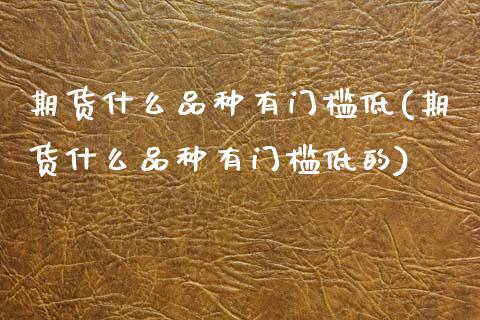 期货什么品种有门槛低(期
货什么品种有门槛低的)